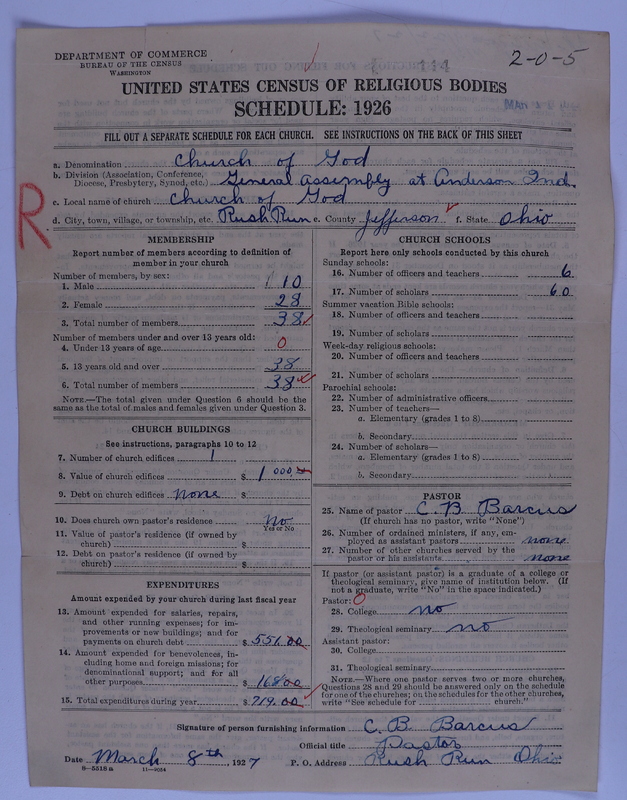 DEPARTMENT OF COMMERCE
BUREAU OF THE CENSUS
WASHINGTON
2-0-5
UNITED STATES CENSUS OF RELIGIOUS BODIES
SCHEDULE: 1926
FILL OUT A SEPARATE SCHEDULE FOR EACH CHURCH. SEE INSTRUCTIONS ON THE BACK OF THIS SHEET
a. Denomination Church of God
b. Division (Association, Conference,
Diocese, Presbytery, Synod, etc.) General Assembly at Anderson Ind.
c. Local name of church Church of God
d. City, town, village, or township, etc. Rush Run e. County Jefferson f. State Ohio
R
MEMBERSHIP
Report number of members according to definition of
member in your church
Number of members, by sex:
1. Male 10
2. Female 28
3. Total number of members 38
Number of members under and over 13 years old:
4. Under 13 years of age 0
5. 13 years old and over 38
6. Total number of members 38
NOTE.—The total given under Question 6 should be
the same as the total of males and females given under Question 3.
CHURCH BUILDINGS
See instructions, paragraphs 10 to 12
7. Number of church edifices 1
8. Value of church edifices $ 1000
9. Debt on church edifices none
10. Does church own pastor's residence No
Yes or No
11. Value of pastor's residence (if owned by
church) $
12. Debt on pastor's residence (if owned by
church) $
EXPENDITURES
Amount expended by your church during last fiscal year
13. Amount expended for salaries, repairs,
and other running expenses; for im-
provements or new buildings; and for
payments on church debt $ 551.00
14. Amount expended for benevolences, in-
cluding home and foreign missions; for
denominational support; and for all
other purposes $ 168.00
15. Total expenditures during year $ 719.00
CHURCH SCHOOLS
Report here only schools conducted by this church
Sunday schools:
16. Number of officers and teachers 6
17. Number of scholars 60
Summer vacation Bible schools:
18. Number of officers and teachers
19. Number of scholars
Week-day religious schools:
20. Number of officers and teachers
21. Number of scholars
Parochial schools:
22. Number of administrative officers
23. Number of teachers—
a. Elementary (grades 1 to 8)
b. Secondary
24. Number of scholars—
a. Elementary (grades 1 to 8)
b. Secondary
PASTOR
25. Name of pastor C. B. Barcus
(If church has no pastor, write "None")
26. Number of ordained ministers, if any, em-
ployed as assistant pastors none
27. Number of other churches served by the
pastor or his assistants none
If pastor (or assistant pastor) is a graduate of a college or
theological seminary, give name of institution below. (If
not a graduate, write "No" in the space indicated.)
Pastor: 0
28. College no
29. Theological seminary no
Assistant pastor:
30. College
31. Theological seminary
NOTE.—Where one pastor serves two or more churches,
Questions 28 and 29 should be answered only on the schedule
for one of the churches; on the schedules for the other churches,
write "See schedule for church."
Signature of person furnishing information C. B. Barcus
Official title Pastor
Date March 8th, 1927 P. O. Address Rush Run Ohio
8—5518 a 11—9034